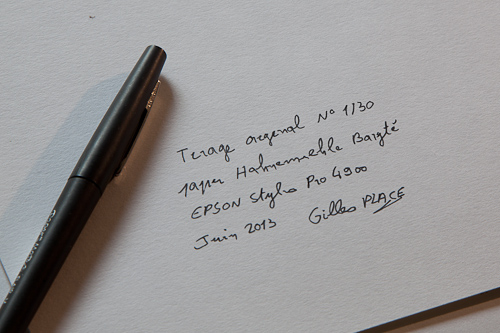 Tirage original N° 1/30
papier Hahnemuehle Baryté
EPSON Stylus Pro 4900
Juin 2013 Gilles PLACE